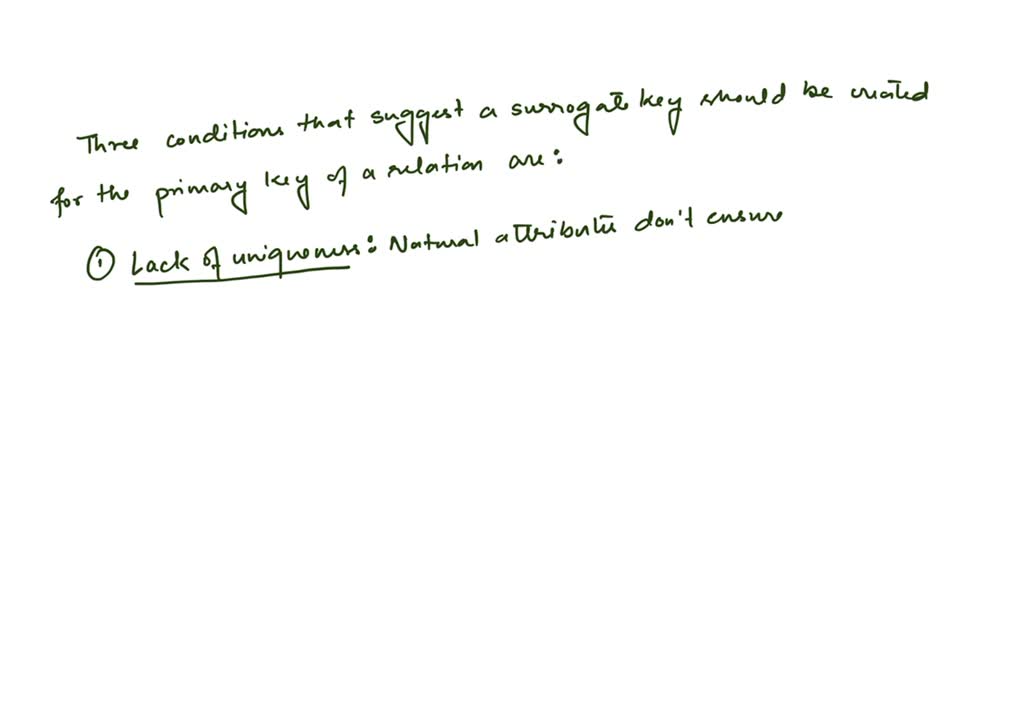 Three conditions that suggest a surrogate key should be created
for the primary key of a relation are:
① Lack of uniqueness: Natural attributes don't ensure